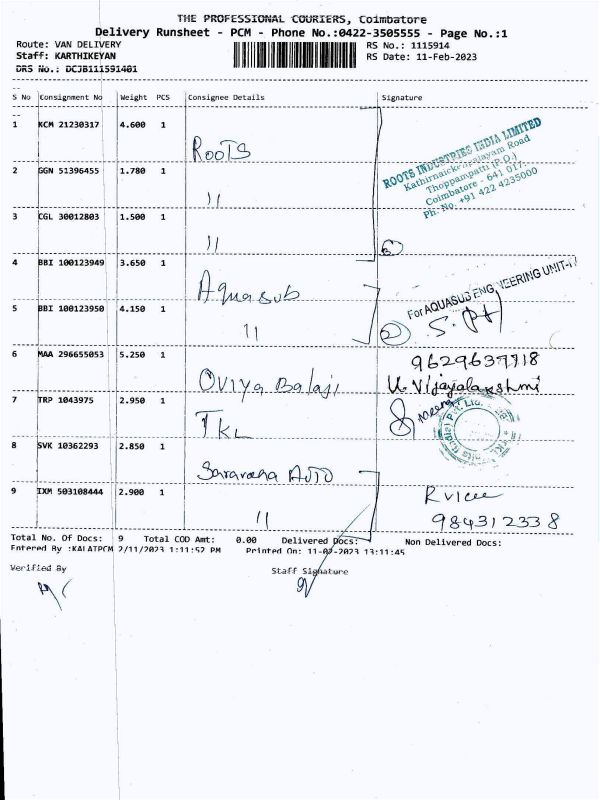 THE PROFESSIONAL COURIERS, Coimbatore
Delivery Runsheet - PCM - Phone No.:0422-3505555 - Page No.:1
Route: VAN DELIVERY
RS No.: 1115914
Staff: KARTHIKEYAN
RS Date: 11-Feb-2023
DRS No.: DCJB111591401
S No Consignment No Weight PCS Consignee Details Signature
1 KCM 21230317 4.600 1
ROOTS
ROOTS INDUSTRIES INDIA LIMITED
Kathirnaickenpalayam Road
Thoppampatti (P.O.)
Coimbatore - 641 017.
Ph. No. +91 422 4235000
2 GGN 51396455 1.780 1
11
3 CGL 30012803 1.500 1
11
3
4 BBI 100123949 3.650 1
Aquasub
For AQUASUB ENGINEERING UNIT-
5 BBI 100123950 4.150 1
11
2
6 MAA 296655053 5.250 1
Oviya Balaji
U. Vijayalakshmi
7 TRP 1043975 2.950 1
TKL
8 SVK 10362293 2.850 1
Saravana Auto
9 IXM 503108444 2.900 1
11
984312338
Total No. Of Docs: 9 Total COD Amt: 0.00 Delivered Docs: Non Delivered Docs:
Entered By :KALAIPCM 2/11/2023 1:11:52 PM Printed On: 11-02-2023 13:11:45
Verified By
Staff Signature